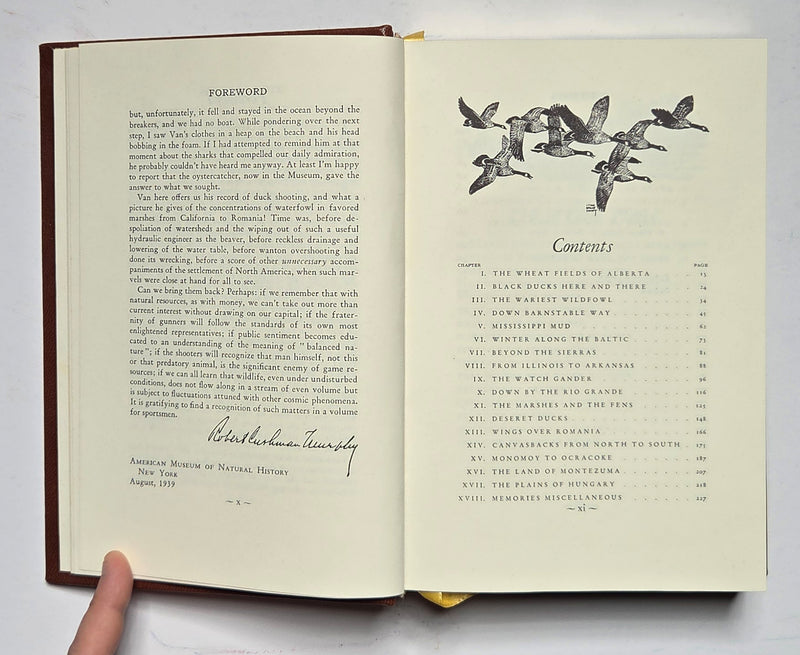 FOREWORD
but, unfortunately, it fell and stayed in the ocean beyond the
breakers, and we had no boat. While pondering over the next
step, I saw Van's clothes in a heap on the beach and his head
bobbing in the foam. If I had attempted to remind him at that
moment about the sharks that compelled our daily admiration,
he probably couldn't have heard me anyway. At least I'm happy
to report that the oystercatcher, now in the Museum, gave the
answer to what we sought.
Van here offers us his record of duck shooting, and what a
picture he gives of the concentrations of waterfowl in favored
marshes from California to Romania! Time was, before de-
spoliation of watersheds and the wiping out of such a useful
hydraulic engineer as the beaver, before reckless drainage and
lowering of the water table, before wanton overshooting had
done its wrecking, before a score of other unnecessary accom-
paniments of the settlement of North America, when such mar-
vels were close at hand for all to see.
Can we bring them back? Perhaps: if we remember that with
natural resources, as with money, we can't take out more than
current interest without drawing on our capital; if the frater-
nity of gunners will follow the standards of its own most
enlightened representatives; if public sentiment becomes edu-
cated to an understanding of the meaning of "balanced na-
ture"; if the shooters will recognize that man himself, not this
or that predatory animal, is the significant enemy of game re-
sources; if we can all learn that wildlife, even under undisturbed
conditions, does not flow along in a stream of even volume but
is subject to fluctuations attuned with other cosmic phenomena.
It is gratifying to find a recognition of such matters in a volume
for sportsmen.
Robert Cushman Murphy
American Museum of Natural History
New York
August, 1939
~ x ~
Contents
CHAPTER PAGE
I. THE WHEAT FIELDS OF ALBERTA . . . . . . 15
II. BLACK DUCKS HERE AND THERE . . . . . . 24
III. THE WARIEST WILDFOWL . . . . . . . 34
IV. DOWN BARNSTABLE WAY . . . . . . . 45
V. MISSISSIPPI MUD . . . . . . . . . 62
VI. WINTER ALONG THE BALTIC . . . . . . 73
VII. BEYOND THE SIERRAS . . . . . . . . 81
VIII. FROM ILLINOIS TO ARKANSAS . . . . . . 88
IX. THE WATCH GANDER . . . . . . . . 96
X. DOWN BY THE RIO GRANDE . . . . . . 116
XI. THE MARSHES AND THE FENS . . . . . . 125
XII. DESERET DUCKS . . . . . . . . . 148
XIII. WINGS OVER ROMANIA . . . . . . . 166
XIV. CANVASBACKS FROM NORTH TO SOUTH . . . . 175
XV. MONOMOY TO OCRACOKE . . . . . . . 187
XVI. THE LAND OF MONTEZUMA . . . . . . 207
XVII. THE PLAINS OF HUNGARY . . . . . . . 218
XVIII. MEMORIES MISCELLANEOUS . . . . . . 227
~ xi ~